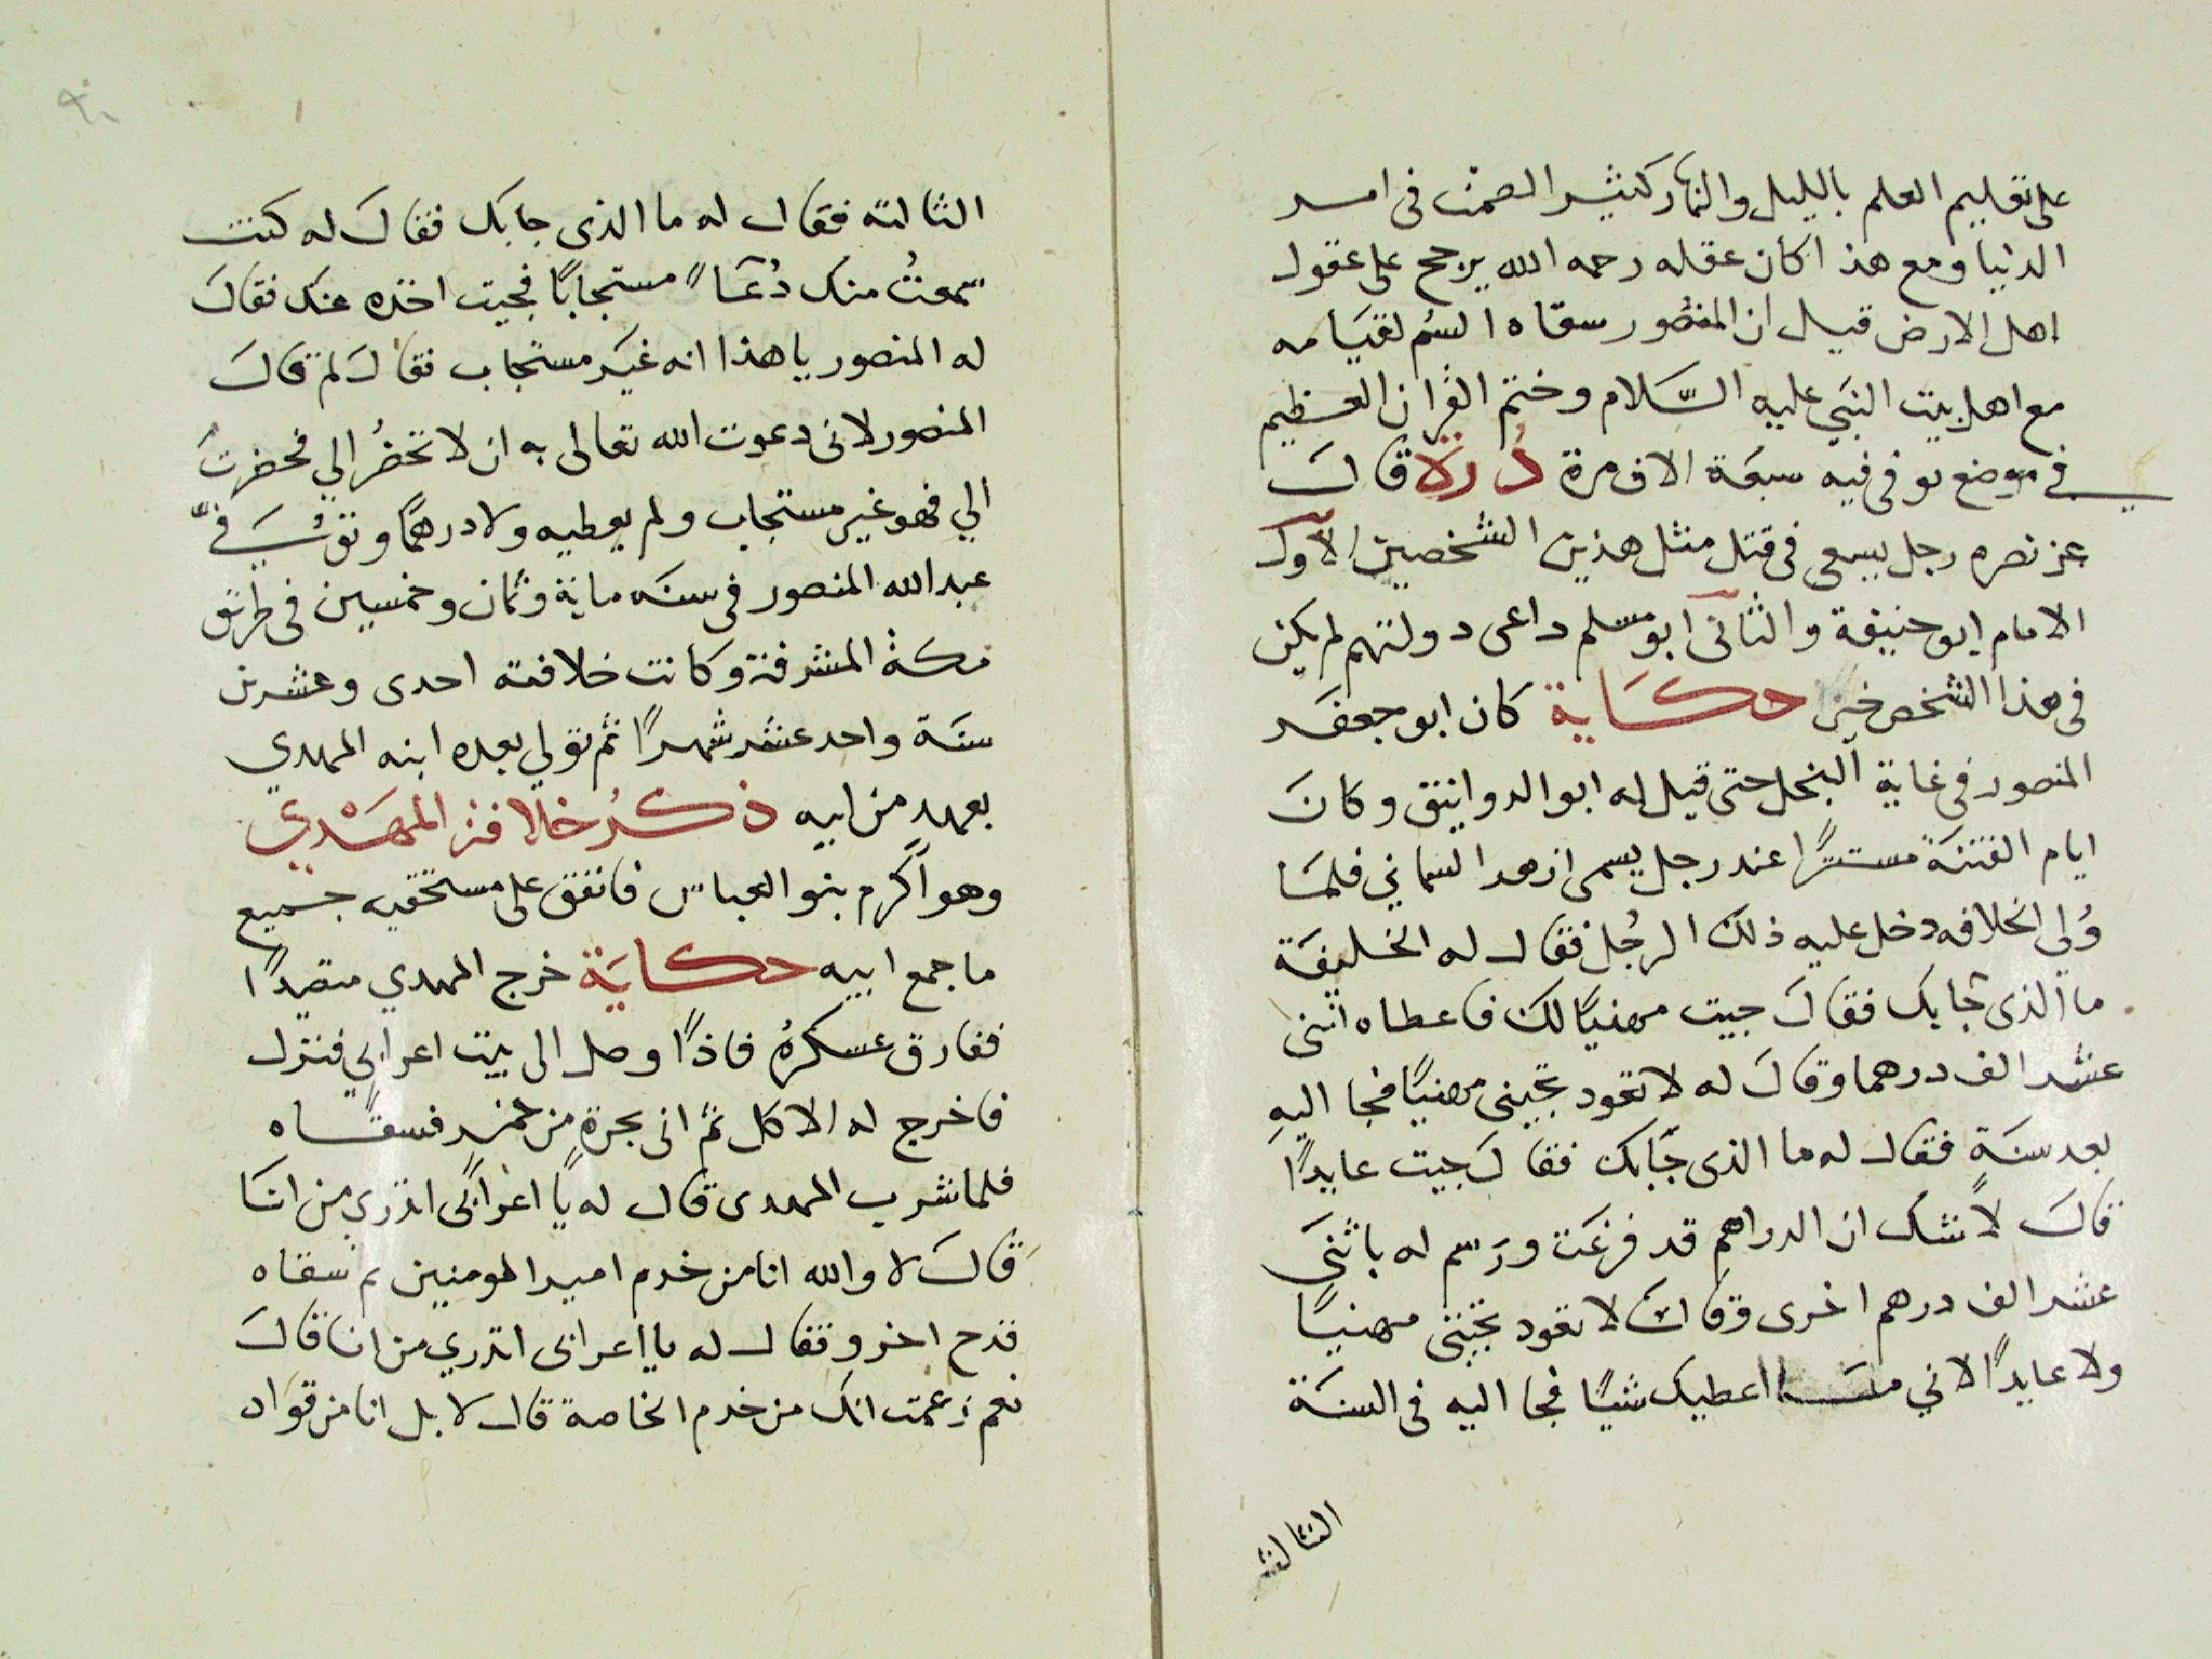 على تعليم العلم بالليل والنهار كثير الصمت فى امر
الدنيا ومع هذا كان عقله رحمه الله يرجح على عقول
اهل الارض قيل ان المنصور سقاه السُم لقيامه
مع اهل بيت النبي عليه السَّلام وختم القران العظيم
في موضع توفى فيه سبعَة الاف مرة دُررَلا قالَ
عز نصره رجل يسعى فى قتل مثل هذين الشخصين الاول
الامام ابو حنيفة والثانى ابو مسلم داعى دولتهم لم يكن
فى هذا الشخص خير حكَاية كان ابو جعفر
المنصور فى غاية البخل حتى قيل له ابو الدوانيق وكانَ
ايام الفتنَة مستترًا عند رجل يسمى ازهر السماني فلمَا
وُلي الخلافه دخل عليه ذلك الرجُل فقال له الخليفَة
ما الذى جابك فقالَ جيت مهنيًا لك فاعطاه اثنى
عشر الف درهما وقالَ له لا تعود تجينى مهنيًا فجا اليه
بعد سنَةٍ فقال له ما الذى جَابك فقالَ جيت عايدًا
قالَ لا شك ان الدراهم قد فرغَت ورَسم له باثنَى
عشر الف درهم اخرى وقالَ لا تعود تجينى مهنيًا
ولا عايدًا لاني مَا اعطيك شيًا فجا اليه فى السنَة
الثالثة
٩٠
الثالثه فقال له ما الذى جابك فقالَ له كنت
سمعتُ منك دُعَاً مستجابًا فجيت اخذه عنك فقالَ
له المنصور يا هذا انه غيَر مستجاب فقالَ لم قالَ
المنصور لانى دعوت الله تعالى به ان لا تحضُر الي فحضرتَ
الي فهو غير مستجاب ولم يعطيه ولا درهمًا وتوُفيَّ
عبد الله المنصور فى سنَه ماية وثمان وخمسين فى طريق
مكة المشرفة وكانت خلافته احدى وعشرين
سنَة واحد عشر شهرًا ثم تولي بعده ابنه المهدي
بعهد من ابيه ذكرُ خلافة المهَدي
وهو اكرم بنو العباس فانفق على مستحقيه جميع
ما جمع ابيه حكايَة خرج المهدي متصيدًا
ففارق عسكرهُ فاذًا وصل الى بيت اعرابي فنزل
فاخرج له الاكل ثم اتى بجرةٍ من خمرٍ فسقَاه
فلما شرب المهدى قال له يا اعرابى اتدرى من انَا
قالَ لا والله انا من خدم امير المومنين ثم سقاه
قدح اخر وقفال له يا اعرابى اتدري من انا قالَ
نعم زعمت انك من خدم الخاصة قال لا بل انا من قواد